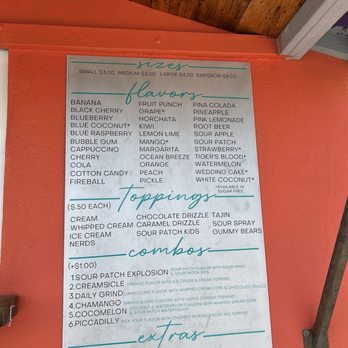 sizes
SMALL $3.00 MEDIUM $3.50 LARGE $4.00 EMPEROR $6.00
flavors
BANANA
BLACK CHERRY
BLUEBERRY
BLUE COCONUT*
BLUE RASPBERRY
BUBBLE GUM
CAPPUCCINO
CHERRY
COLA
COTTON CANDY
FIREBALL
FRUIT PUNCH
GRAPE*
HORCHATA
KIWI
LEMON LIME
MANGO*
MARGARITA
OCEAN BREEZE
ORANGE
PEACH
PICKLE
PINA COLADA
PINEAPPLE
PINK LEMONADE
ROOT BEER
SOUR APPLE
SOUR PATCH
STRAWBERRY*
TIGER'S BLOOD*
WATERMELON
WEDDING CAKE*
WHITE COCONUT*
*AVAILABLE IN
SUGAR FREE
toppings
($.50 EACH)
CREAM
WHIPPED CREAM
ICE CREAM
NERDS
CHOCOLATE DRIZZLE
CARAMEL DRIZZLE
SOUR PATCH KIDS
TAJIN
SOUR SPRAY
GUMMY BEARS
combos
(+$1.00)
1.SOUR PATCH EXPLOSION SOUR PATCH FLAVOR WITH SOUR SPRAY
& SOUR PATCH KIDS
2.CREAMSICLE ORANGE FLAVOR WITH ICE CREAM & CREAM TOPPING
3.DAILY GRIND CAPPUCCINO FLAVOR WITH WHIPPED CREAM & CHOCOLATE DRIZZLE
4.CHAMANGO MANGO FLAVOR WITH TAJIN & CHAMOY TOPPING
5.COCOMELON
& SOUR PATCH WATERMELON
6.PICCADILLY PICK YOUR FLAVOR WITH CHOPPED PICKLES & KOOL AID TOPPING
extras